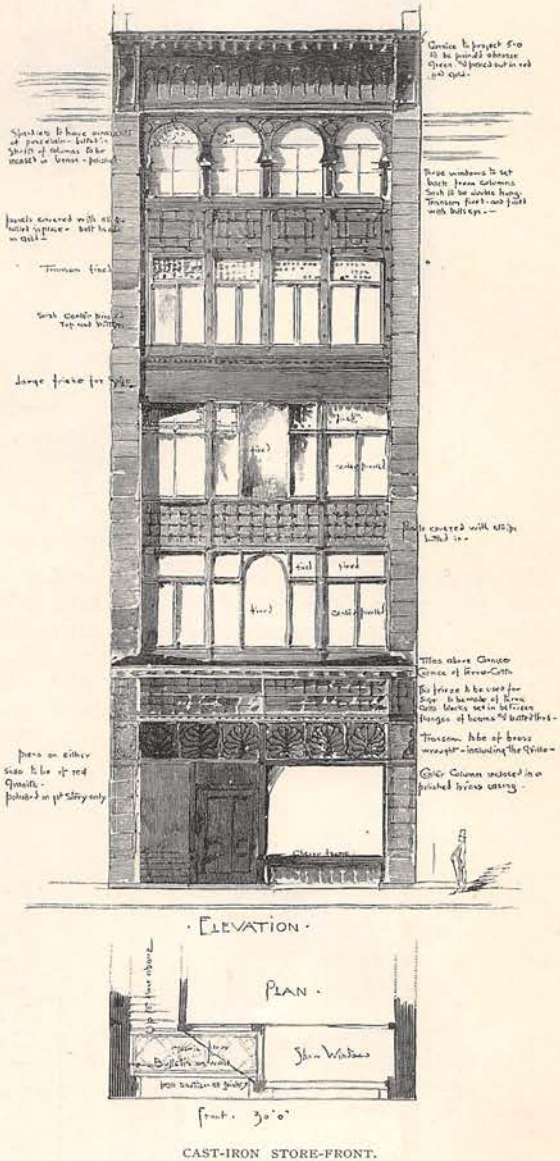 Cornice to project 5-0
to be painted
Green picked out in red
and gold.-
Spandrels to have ornaments
of porcelain - bolted in
Shafts of columns to be
encased in bronze - polished
These windows to set
back from columns
Sash to be double hung.
Transom fixed - and filled
with bullseye.-
panels covered with
in place - bolt heads
in gold -
Transom fixed
Sash center pivoted
Top and bottom
Large frieze for Sign
fixed
fixed
center pivoted
Panels covered with
bolted in -
fixed
fixed
fixed
center pivoted
Tiles above Cornice
Cornice of Terra-Cotta
This frieze to be used for
Sign to be made of Terra
Cotta blocks set in between
flanges of beams & bolted thro-
Transom to be of brass
wrought - including the Grille -
Center Column inclosed in a
polished brass casing -
Piers on either
side to be of red
Granite -
polished in 1st Story only
· ELEVATION ·
PLAN ·
Up to floor above
floor
Bulletin on wall
Show Window
Front · 30'0"
CAST-IRON STORE-FRONT.